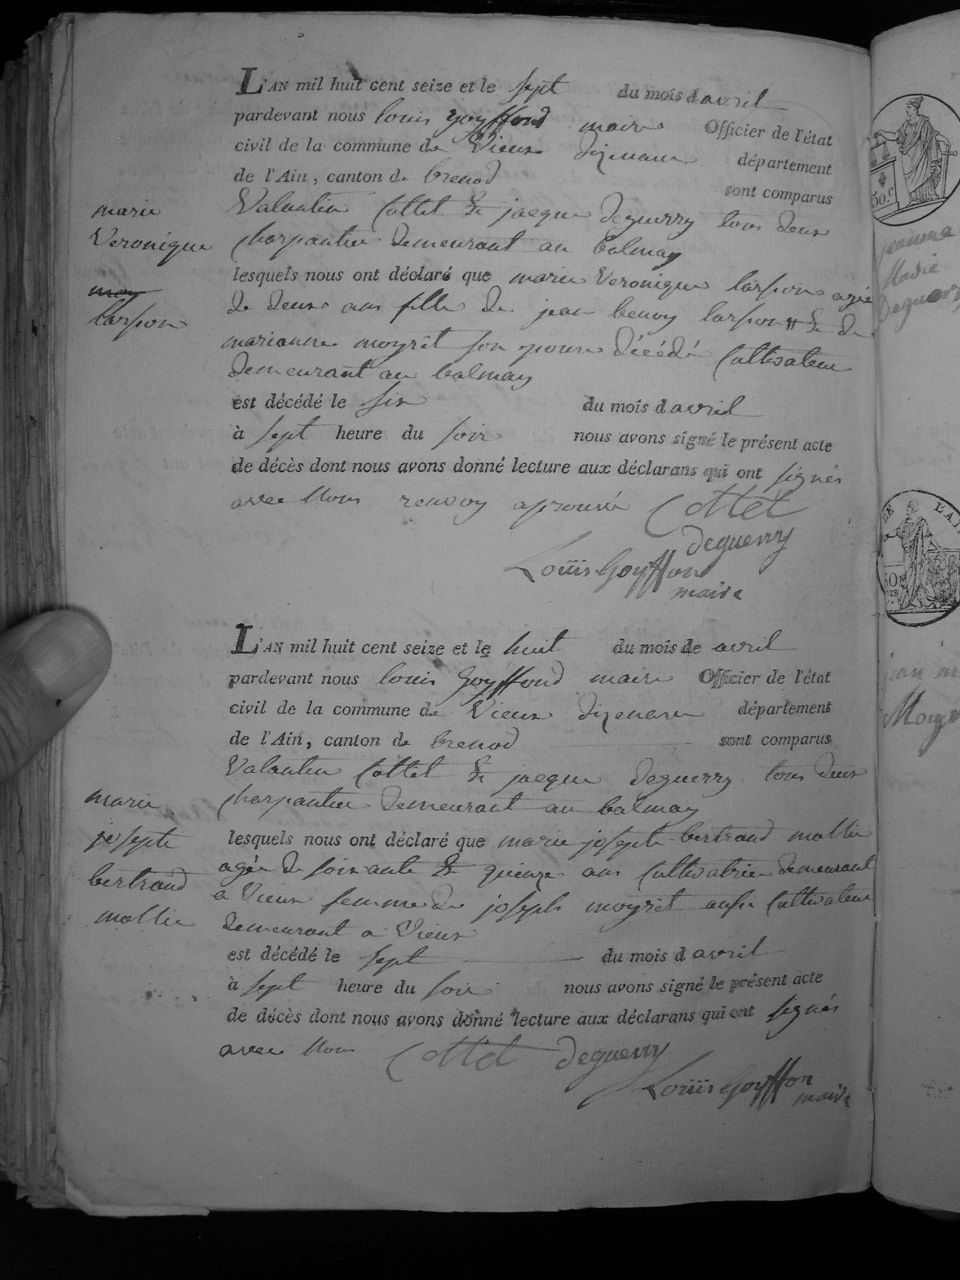 L'AN mil huit cent seize et le sept du mois d avril
pardevant nous louis goyffond maire Officier de l'état
civil de la commune de Vieux dizenave département
de l'Ain, canton de brenod
sont comparus
Valentin Cottet & jacque deguerry tous deux
charpantier demeurant au balmay
marie
Veronique
larson
lesquels nous ont déclaré que marie Veronique larson agée
de deux ans fille de jean benoy larson # & de
marianne moyrêt son epouse décédé Cultivateur
demeurant au balmay
est décédé le six du mois d avril
à sept heure du soir nous avons signé le présent acte
de décès dont nous avons donné lecture aux déclarans qui ont signés
avec Nous renvoy aprouvé Cottet
deguerry
Louiis Goyffon
maire
L'AN mil huit cent seize et le huit du mois de avril
pardevant nous louis goyffond maire Officier de l'état
civil de la commune de Vieux dizenave département
de l'Ain, canton de brenod sont comparus
Valentin Cottet & jacque deguerry tous deux
charpantier demeurant au balmay
marie
josepte
bertrand
mollie
lesquels nous ont déclaré que marie josepte bertrand mollie
agée de soixante & quinze ans Cultivatrice demeurant
a Vieux femme de joseph moyrêt aussi Cultivateur
demeurant a Vieux
est décédé le sept du mois d avril
à sept heure du soir nous avons signé le présent acte
de décès dont nous avons donné lecture aux déclarans qui ont signés
avec Nous Cottet deguerry
Louiis Goyffon
maire
jeanne
Marie
Deguerry
jean